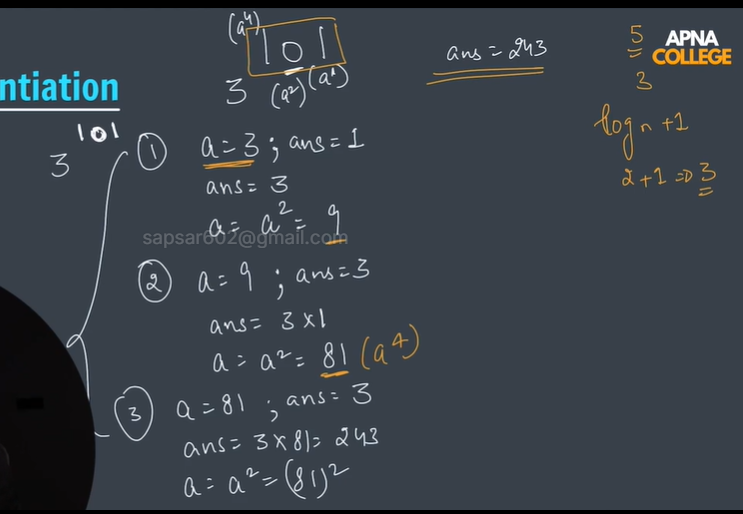 (a⁴)
1 0 1
3 (a²) (a¹)
ans = 243
5
3
APNA
COLLEGE
ntiation
log n + 1
2 + 1 ⇒ 3
3¹⁰¹
① a = 3 ; ans = 1
ans = 3
a = a² = 9
sapsar602@gmail.com
② a = 9 ; ans = 3
ans = 3 × 1
a = a² = 81 (a⁴)
③ a = 81 ; ans = 3
ans = 3 × 81 = 243
a = a² = (81)²